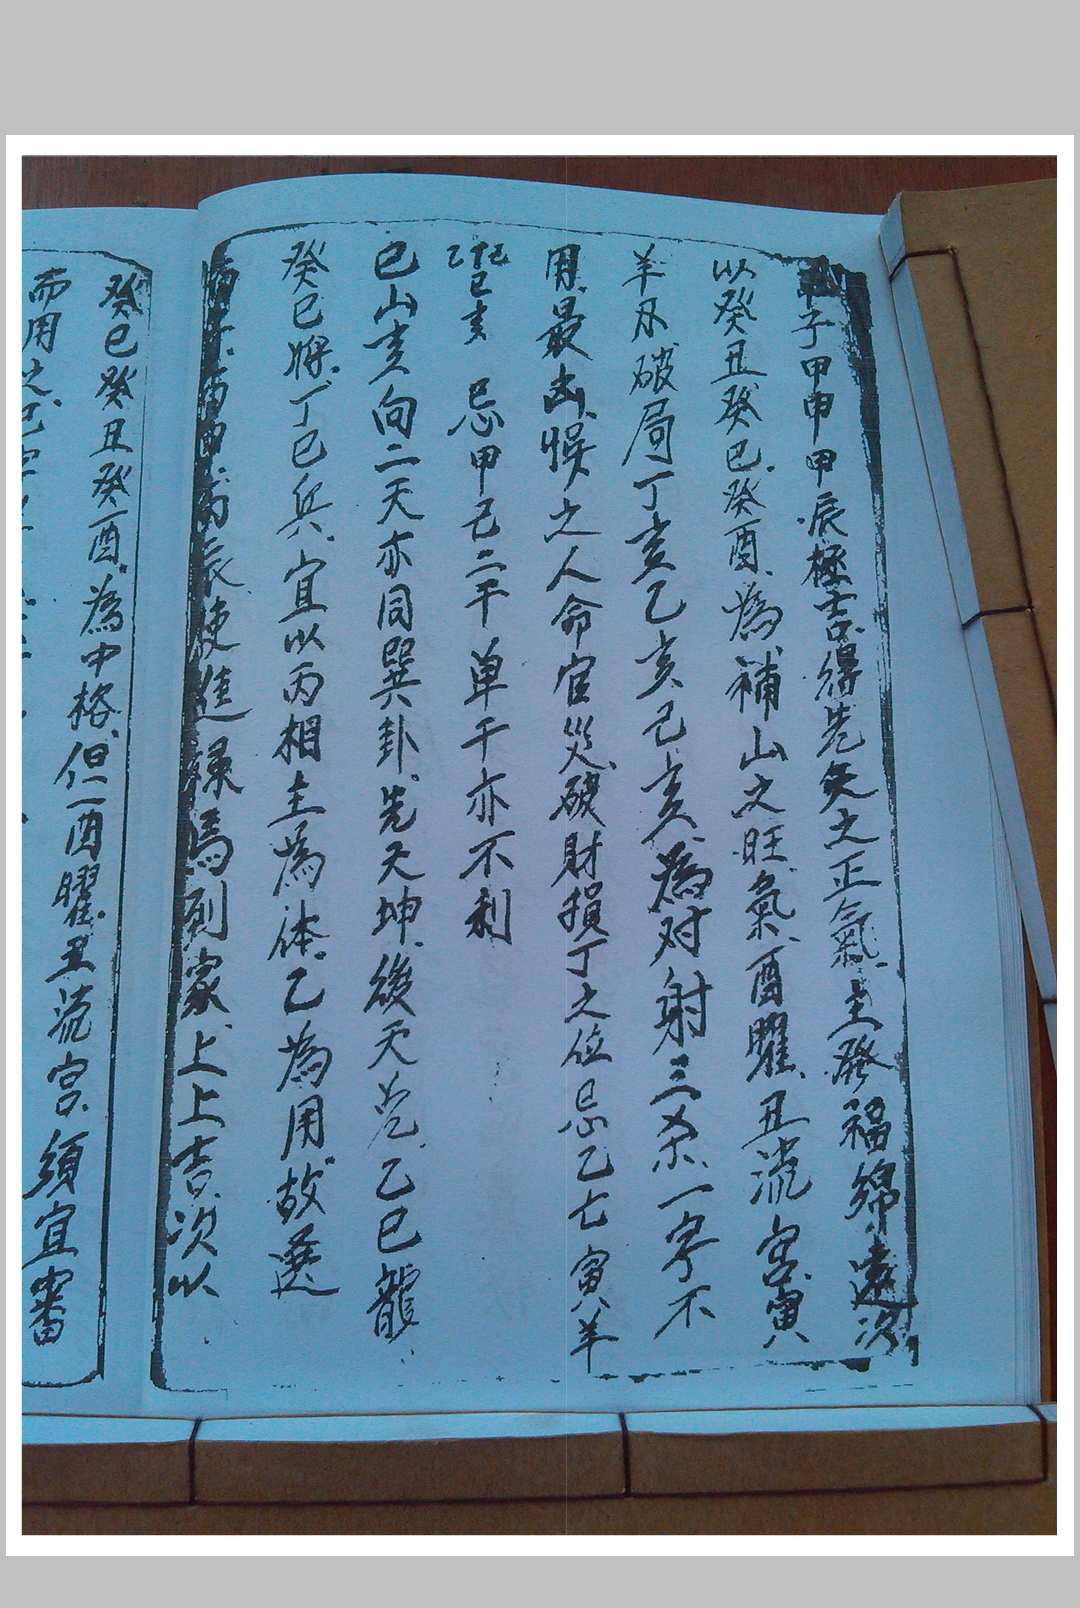 子甲申甲辰極吉得先天之正氣主發福綿遠次
以癸丑癸巳癸酉為補山之旺氣酉曜丑流宮寅
羊刃破局丁亥乙亥己亥為对射三杀一字不
用最凶悞之人命官災破財損丁之位忌乙七寅羊
乙巳亥 忌甲己二干單干亦不利
巳山亥向二天亦同巽卦先天坤後天巽乙巳龍
癸巳將丁巳兵宜以丙相主為体乙為用故选
酉甲辰使進祿馬到家上上吉次以
癸巳癸丑癸酉為中格但酉曜丑流宮須宜審
而用之